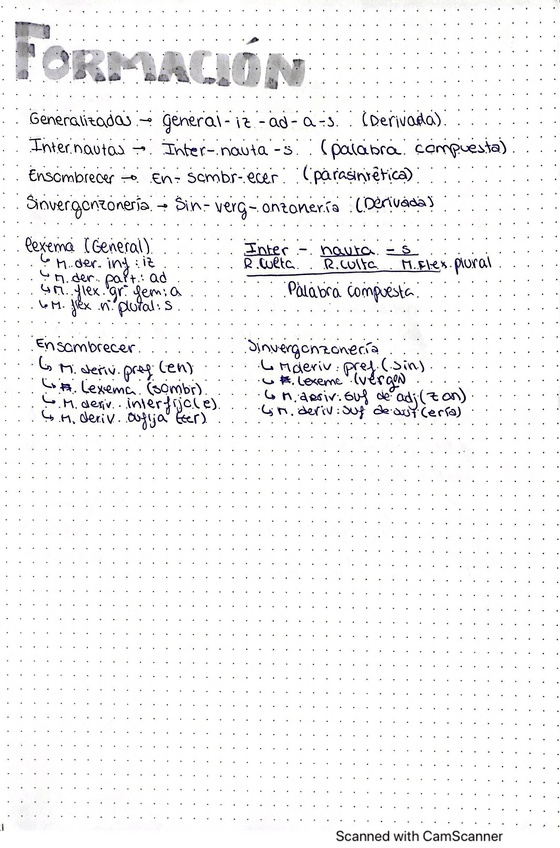 FORMACIÓN
Generalizadas → general-iz-ad-a-s. (Derivada)
Internautas → Inter-nauta-s. (palabra compuesta)
Ensombrecer → En-sombr-ecer. (parasintética)
Sinvergonzonería → Sin-verg-onzonería (Derivada)
Lexema (General)
↳ M. der. inf.: iz
↳ M. der. part.: ad
↳ M. flex. gr. fem: a
↳ M. flex. n. plural: s
Inter - nauta - s
R. Culta R. Culta M. flex. plural
Palabra compuesta.
Ensombrecer
↳ M. deriv. pref (en)
↳ Lexema. (sombr)
↳ M. deriv. interfijo (e)
↳ M. deriv. sufija (cer)
Sinvergonzonería
↳ M deriv. pref. (sin)
↳ Lexema (vergon)
↳ M. deriv. suf de adj (zon)
↳ M. deriv. suf de sut (ería)
Scanned with CamScanner